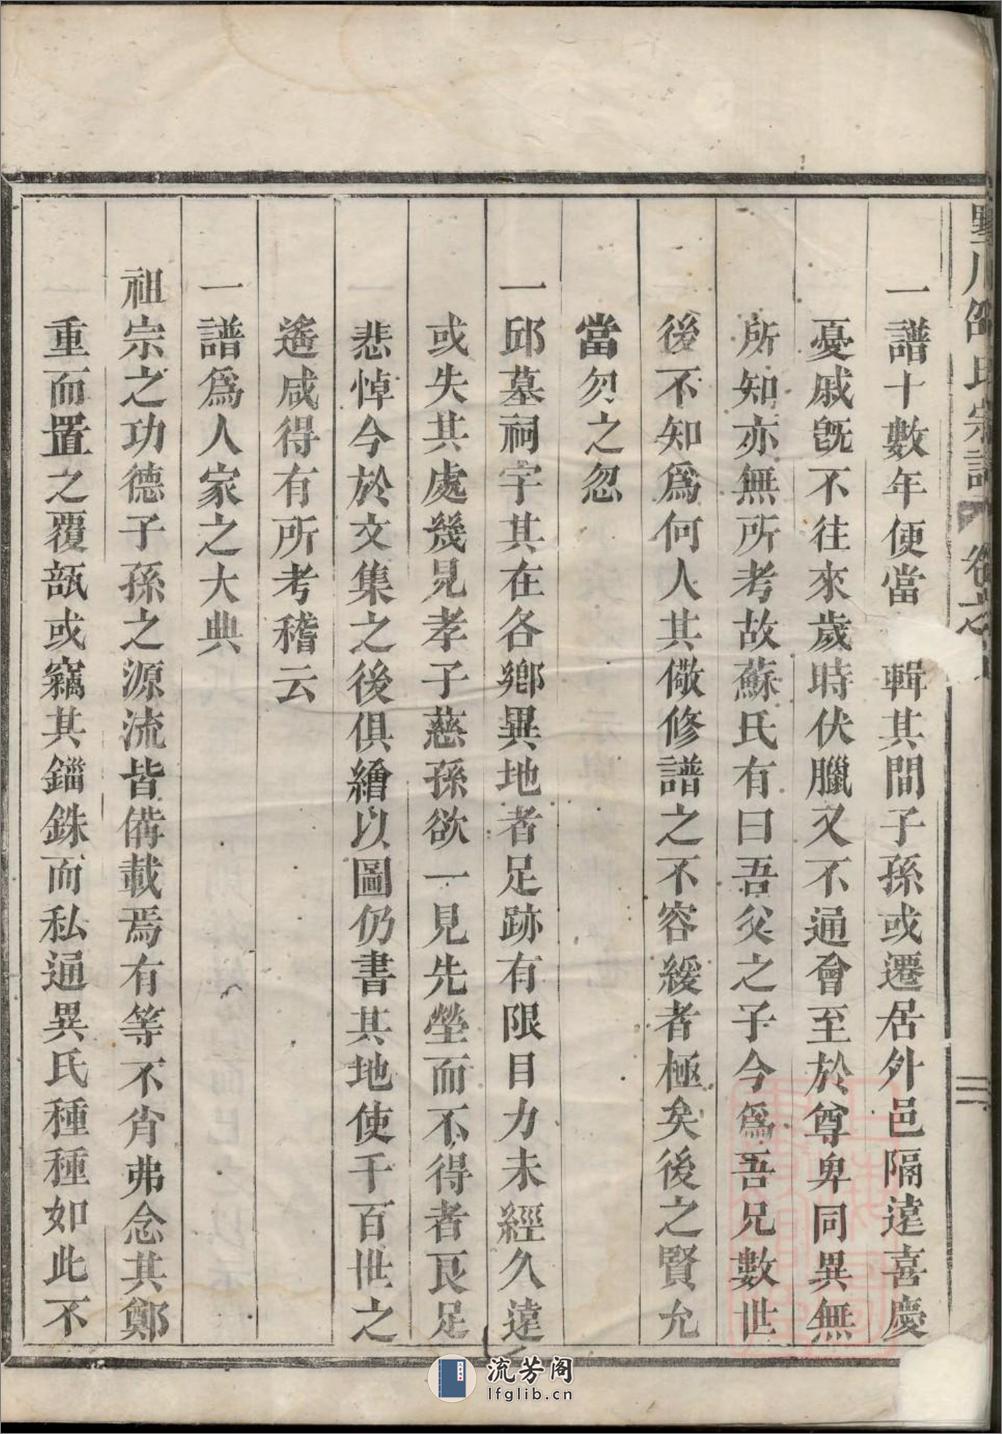 一譜十數年便當輯其間子孫或遷居外邑隔遠喜慶
憂戚旣不往來歲時伏臘又不通會至於尊卑同異無
所知亦無所考故蘇氏有曰吾父之子今爲吾兄數世
後不知爲何人其儆修譜之不容緩者極矣後之賢允
當勿之忽
一邱墓祠宇其在各鄕異地者足跡有限目力未經久遠
或失其處幾見孝子慈孫欲一見先塋而不得者艮足
悲悼今於文集之後俱繪以圖仍書其地使千百世之
遙咸得有所考稽云
一譜爲人家之大典
祖宗之功德子孫之源流皆備載焉有等不肖弗念其鄭
重而置之覆瓿或竊其錙銖而私通異氏種種如此不
邵氏宗譜
卷之
二
流芳阁
lfglib.cn